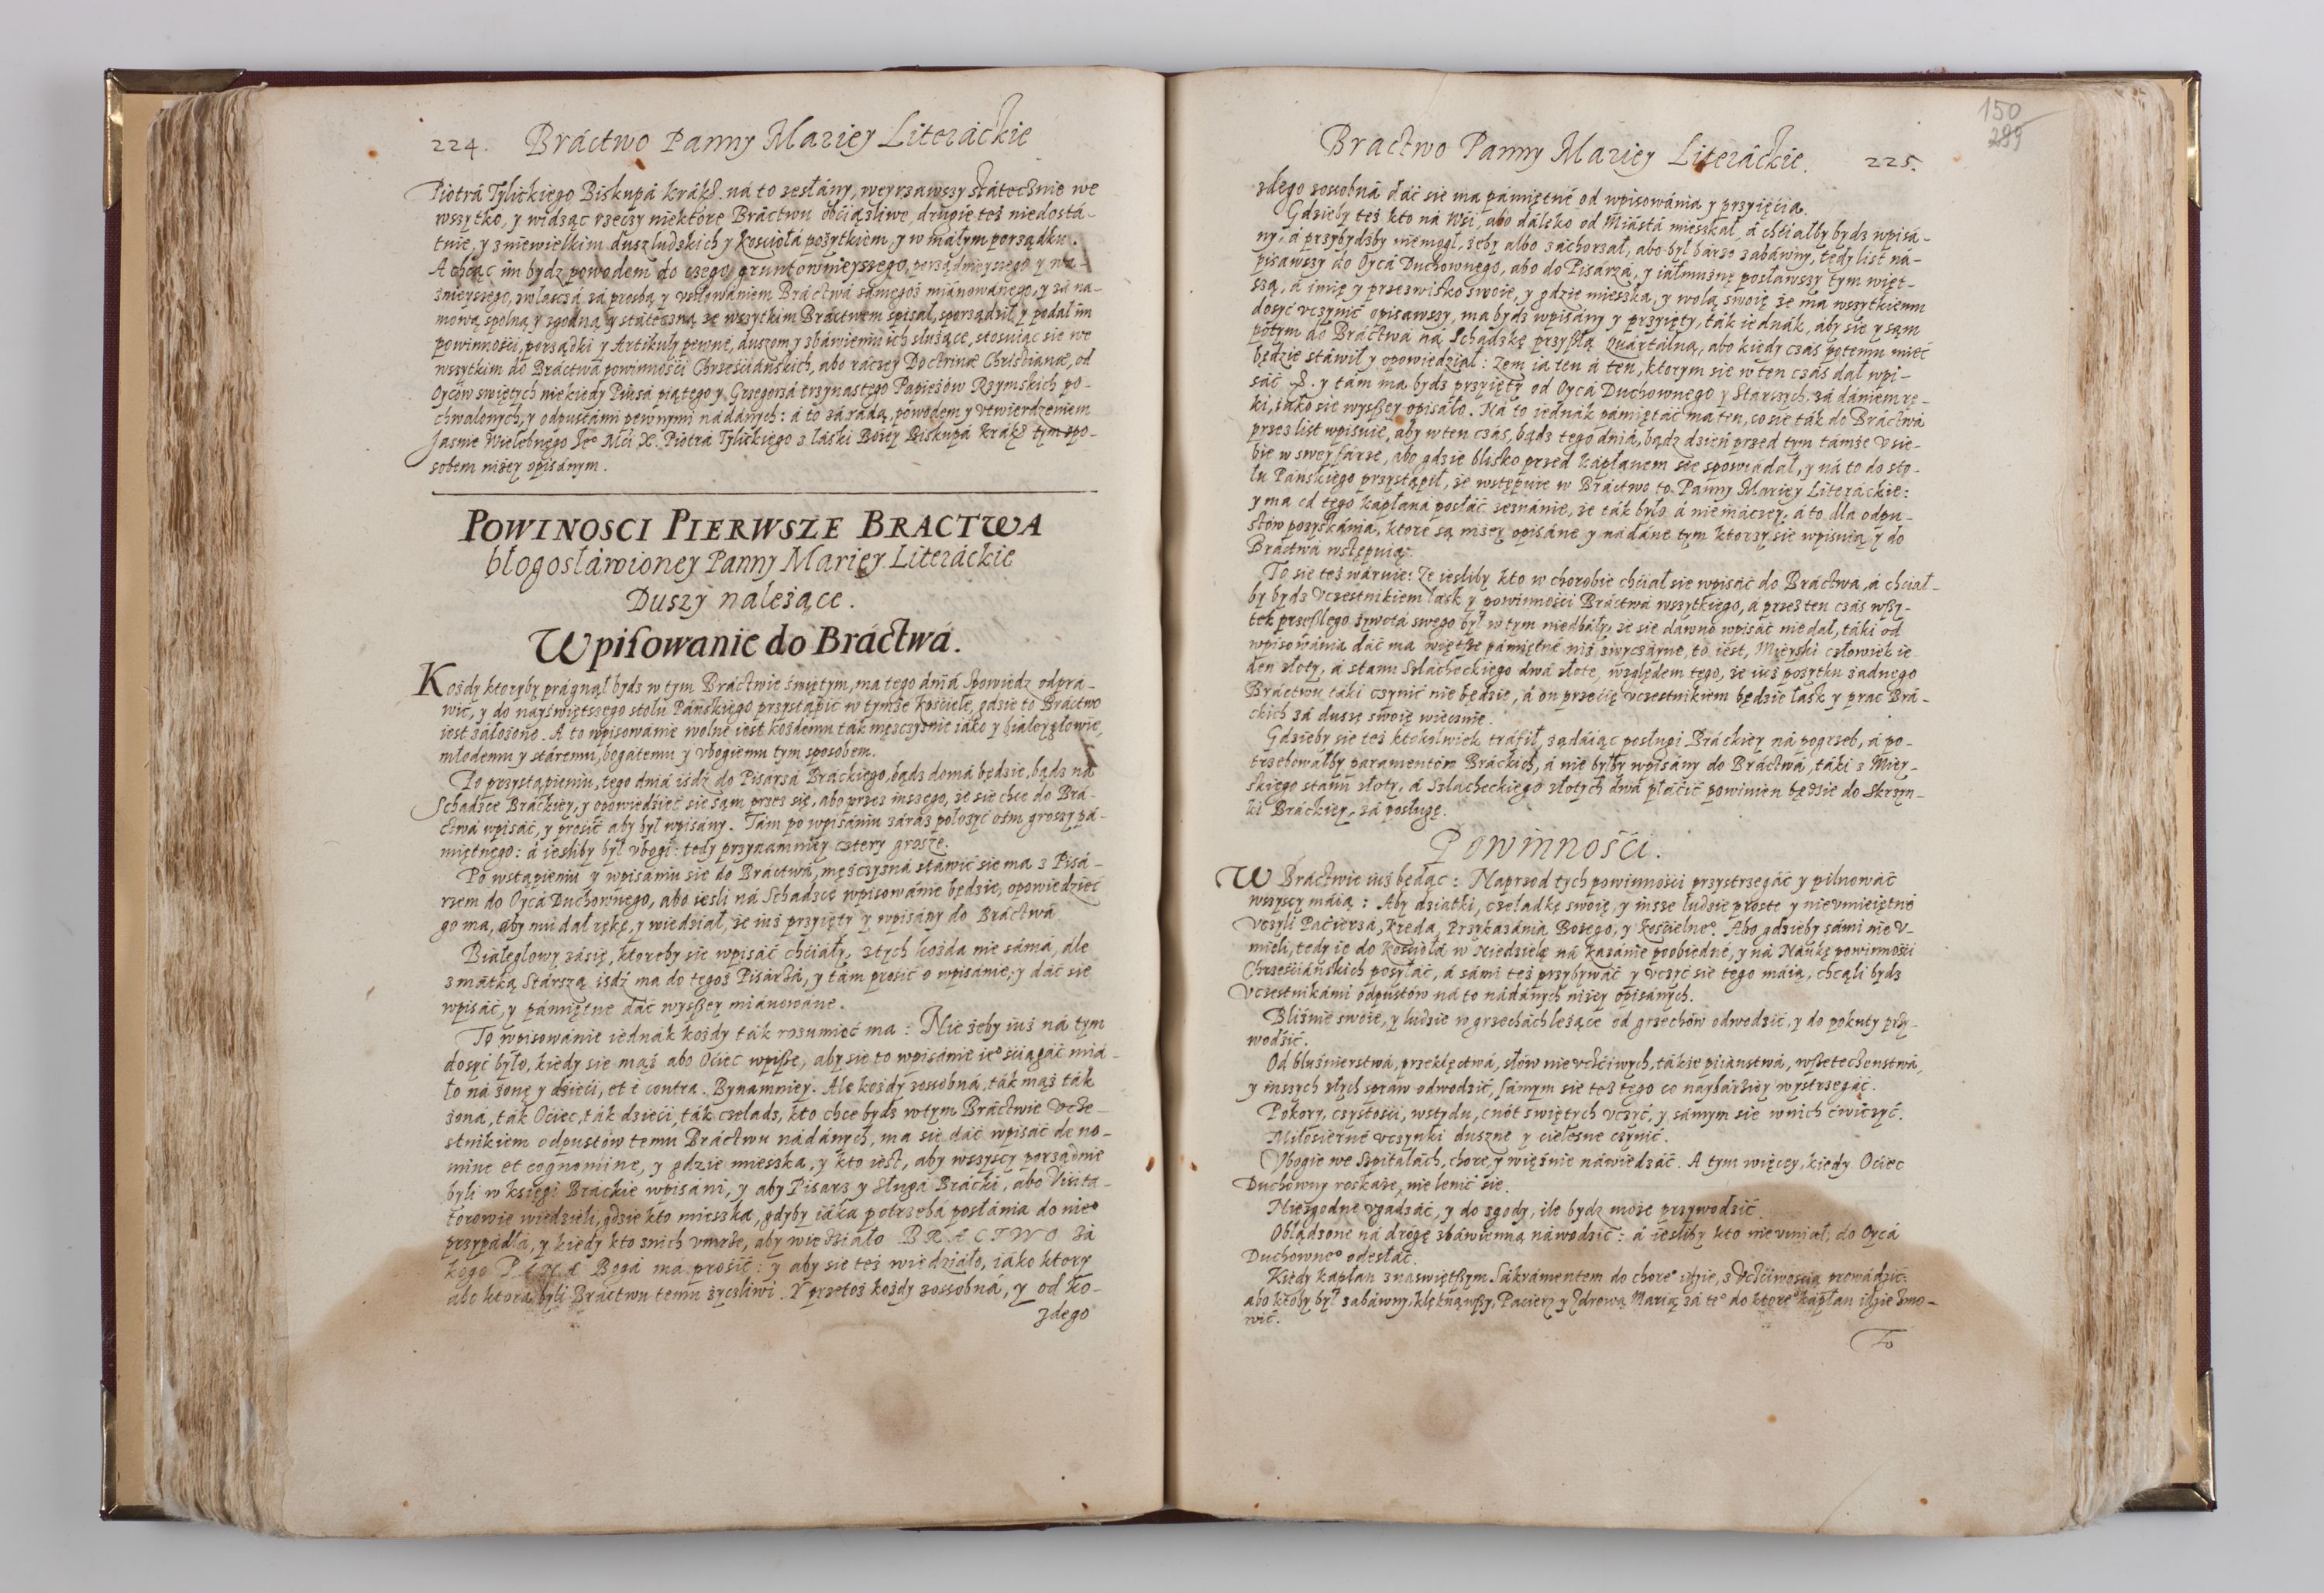 224. Bráctwo Panny Mariey Literáckie
Piotrá Tylickiego Biskupá kráḱ. ná to zesłány, weyrzawszy státecznie we
wszytko, y widząc rzeczy niektóre Bráctwu obciążliwe, drugie też niedostá-
tnie, y z niewielkim dusz ludzkich y kośćiołá pożytkiem, y w máłym porządku.
A chcąc im bydz powodem do czego gruntownieyszego, porządnieyszego y wa-
żnieyszego, zwłaszczá zá prośbą y vsiłowaniem Bráctwá sámegoż miánowánego, y zá na-
mową spolną y zgodną y státeczną ze wszytkim Bráctwem spisał, sporządził y podał im
powinnośći, porządki y Artikuły pewne, duszom y zbáwieniu ich służące, stosuiąc sie we
wszytkim do Bráctwá powinnośći Chrześćiáńskich, abo ráczey Doctrinæ Christianæ, od
Oyców świętych niekiedy Piusá piątego y Grzegorzá trzynastego Papieżów Rzymskich po-
chwalonych, y odpustámi pewnymi nádánych: á to zá rádą, powodem y vtwierdzeniem
Jasnie Wielebnego Je° Mći X. Piotrá Tylickiego z łáski Bożey Biskupá kráḱ tym spo-
sobem niżey opisánym.
POWINOSCI PIERWSZE BRACTWA
błogosłáwioney Panny Mariey Literáckie
Duszy należące.
Wpisowanie do Bráctwá.
Kożdy ktoryby prágnął bydz w tym Bráctwie świętym, ma tego dniá spowiedz odprá-
wić, y do nayświętszego stołu Páńskiego przystąpić w tymże kościele, gdzie to Bráctwo
iest záłożono. A to wpisowánie wolne iest kożdemu ták męsczyznie iáko y białeygłowie,
młodemu y stáremu, bogátemu y vbogiemu tym sposobem.
Po przystąpieniu, tego dniá iśdź do Pisarzá Bráckiego, bądz domá będzie, bądz ná
Schádzce Bráckiey, y opowiedzieć sie sąm przez się, abo przez inszego, że sie chce do Brá-
ctwá wpisáć, y prosić aby był wpisány. Tám po wpisániu záráz położyć ośm groszy pá-
miętnego: á iesliby był vbogi: tedy przynamniey cztery grosze.
Po wstąpieniu y wpisániu sie do Bráctwá, męsczyzná stáwić sie ma z Pisá-
rzem do Oycá Duchownego, abo iesli ná Schadzce wpisowánie będzie, opowiedzieć
go ma, aby mu dał rękę, y wiedział, że iuż przyięty y wpisány do Bráctwá.
Białegłowy zásię, ktoreby sie wpisáć chćiáły, z tych kożda nie sámá, ále
z mátką Stárszą iśdź ma do tegoż Pisárzá, y tám prosić o wpisánie, y dáć sie
wpisáć, y pámiętne dáć wyszszey miánowáne.
To wpisowánie iednák kożdy ták rozumieć ma: Nie żeby iuż ná tym
dosyć było, kiedy sie mąż abo Oćiec wpisze, aby sie to wpisánie ie° śćiągáć miá-
ło ná żonę y dzieći, et è contra. Bynamniey. Ale kożdy zossobná, ták mąż ták
żoná, ták Oćiec, ták dzieći, ták czeladz, kto chce bydz w tym Bráctwie vcze-
stnikiem odpustów temu Bráctwu nádánych, ma się dáć wpisáć de no-
mine et cognomine, y gdzie mieszka, y kto iest, aby wszyscy porządnie
byli w księgi Bráckie wpisáni, y aby Pisarz y Sługá Brácki, abo Visita-
torowie wiedzieli, gdzie kto mieszka, gdyby iáka potrzebá posłánia do nie°
przypádłá, y kiedy kto z nich vmrze, aby wiedziáło BRACTWO zá
kogo PANA Bogá ma prosić: y aby sie też wiedziáło, iáko ktory
abo ktora byli Bráctwu temu życzliwi. Y przetoż kożdy zossobná, y od ko-
żdego
150
Bractwo Panny Mariey Literáckie. 225.
żdego zossobná dáć sie ma pámiętné od wpisowánia y przyięćia.
Gdzieby też kto ná wśi, abo dáleko od Miástá mieszkał, á chćiałby bydz wpisá-
ny, á przybydźby niemogł, żeby albo záchorzał, abo był bárzo zabáwny, tedy list ná-
pisawszy do Oycá Duchownego, abo do Pisárzá, y iáłmużnę posławszy tym więt-
szą, á imię y przezwisko swoie, y gdzie mieszka, y wolą swoię że ma wszytkiemu
dosyć vczynić opisawszy, ma bydz wpisány y przyięty, ták iednák, áby sie y sąm
potym do Bráctwá ná Schadzkę przyszłą Quártálną, abo kiedy czás potemu mieć
będzie stáwił y opowiedział: Żem ia ten á ten, ktorym sie w ten czás dał wpi-
sáć &. y tám ma bydz przyięty od Oycá Duchownego y Stárszych, zá dániem rę-
ki, iáko sie wyszszey opisáło. Ná to iednák pámiętáć ma ten, co sie ták do Bráctwá
przez list wpisuie, aby w ten czás, bądz tego dniá, bądz dzień przed tym támże v sie-
bie w swey fárze, abo gdzie blisko przed kápłanem sie spowiádał, y ná to do sto-
łu Páńskiego przystąpił, że wstępuie w Bráctwo to Panny Mariey Literáckie:
y ma od tego kápłaná posłáć zeznánie, że ták było á nie ináczey, á to dla odpu-
stów pozyskánia, ktore są niżey opisáne y nádáne tym ktorzy sie wpisuią y do
Bráctwá wstępuią.
To sie też wáruie: Że iesliby kto w chorobie chćiał sie wpisáć do Bráctwá, á chćiał-
by bydz vczestnikiem łask y powinnośći Bráctwá wszytkiego, á przez ten czás wszy-
tek przeszłego żywotá swego był w tym niedbáły, że sie dáwno wpisáć nie dał, táki od
wpisowánia dáć ma większe pámiętné niż zwyczáyne, to iest, Mieyski człowiek ie-
den złoty, á stanu Szlácheckiego dwá złote, względem tego, że iuż pożytku żadnego
Bráctwu táki czynić nie będzie, á on przećię vczestnikiem będzie łask y prac Brá-
ckich zá duszę swoię wiecznie.
Gdzieby sie też ktokolwiek tráfił, żądáiąc posługi Bráckiey ná pogrzeb, á po-
trzebowałby paramentów Bráckich, á nie byłby wpisány do Bráctwá, táki z Miey-
skiego stanu złoty, á Szlácheckiego złotych dwá płáćić powinien będzie do Skrzyn-
ki Bráckiey, zá posługę.
Powinnośći.
W Bráctwie iuż będąc: Naprzod tych powinnośći przystrzegáć y pilnowáć
wszyscy máią: Aby dziatki, czeladkę swoię, y insze ludzie proste y nievmieiętné
vczyli Páćierzá, Kredá, Przykazánia Bożego, y kośćielne°. Abo gdzieby sámi nie v-
mieli, tedy ie do kośćiołá w Niedzielę ná kazánie poobiedné, y ná Náukę powinnośći
Chrześćiáńskich posyłáć, á sámi też przybywáć y vczyć sie tego máią, chcąli bydz
vczestnikámi odpustów ná to nádánych niżey opisánych.
Bliźnie swoie, y ludzie w grzechách leżące od grzechów odwodzić, y do pokuty przy-
wodźić.
Od bluźnierstwá, przeklęctwá, słów nievczćiwych, tákże pijáństwá, wszetecżeństwá,
y inszych złych spraw odwodzić, sámym sie też tego co naybárżiey wystrzegáć.
Pokory, czystośći, wstydu, cnót świętych vczyć, y sámym sie w nich ćwiczyć.
Miłosierné vczynki duszne y ćielesne czynić.
Vbogie we Szpitalách, chore, y więźnie náwiedzáć. A tym więcey, kiedy Oćiec
Duchowny roskaże, nie lenić sie.
Niezgodne vgadzáć, y do zgody, ile bydz może przywodzić.
Obłądzone ná drogę zbáwienną náwodzić: á iesliby kto nie vmiał: do Oycá
Duchowne° odesłáć.
Kiedy kápłan z naswiętszym Sákrámentem do chore° idzie, z vczćiwośćią prowádzić:
abo ktoby był zabáwny, klęknąwszy, Páćierz y Zdrową Marią zá te° do ktore° kápłan idzie zmo-
wić.
To